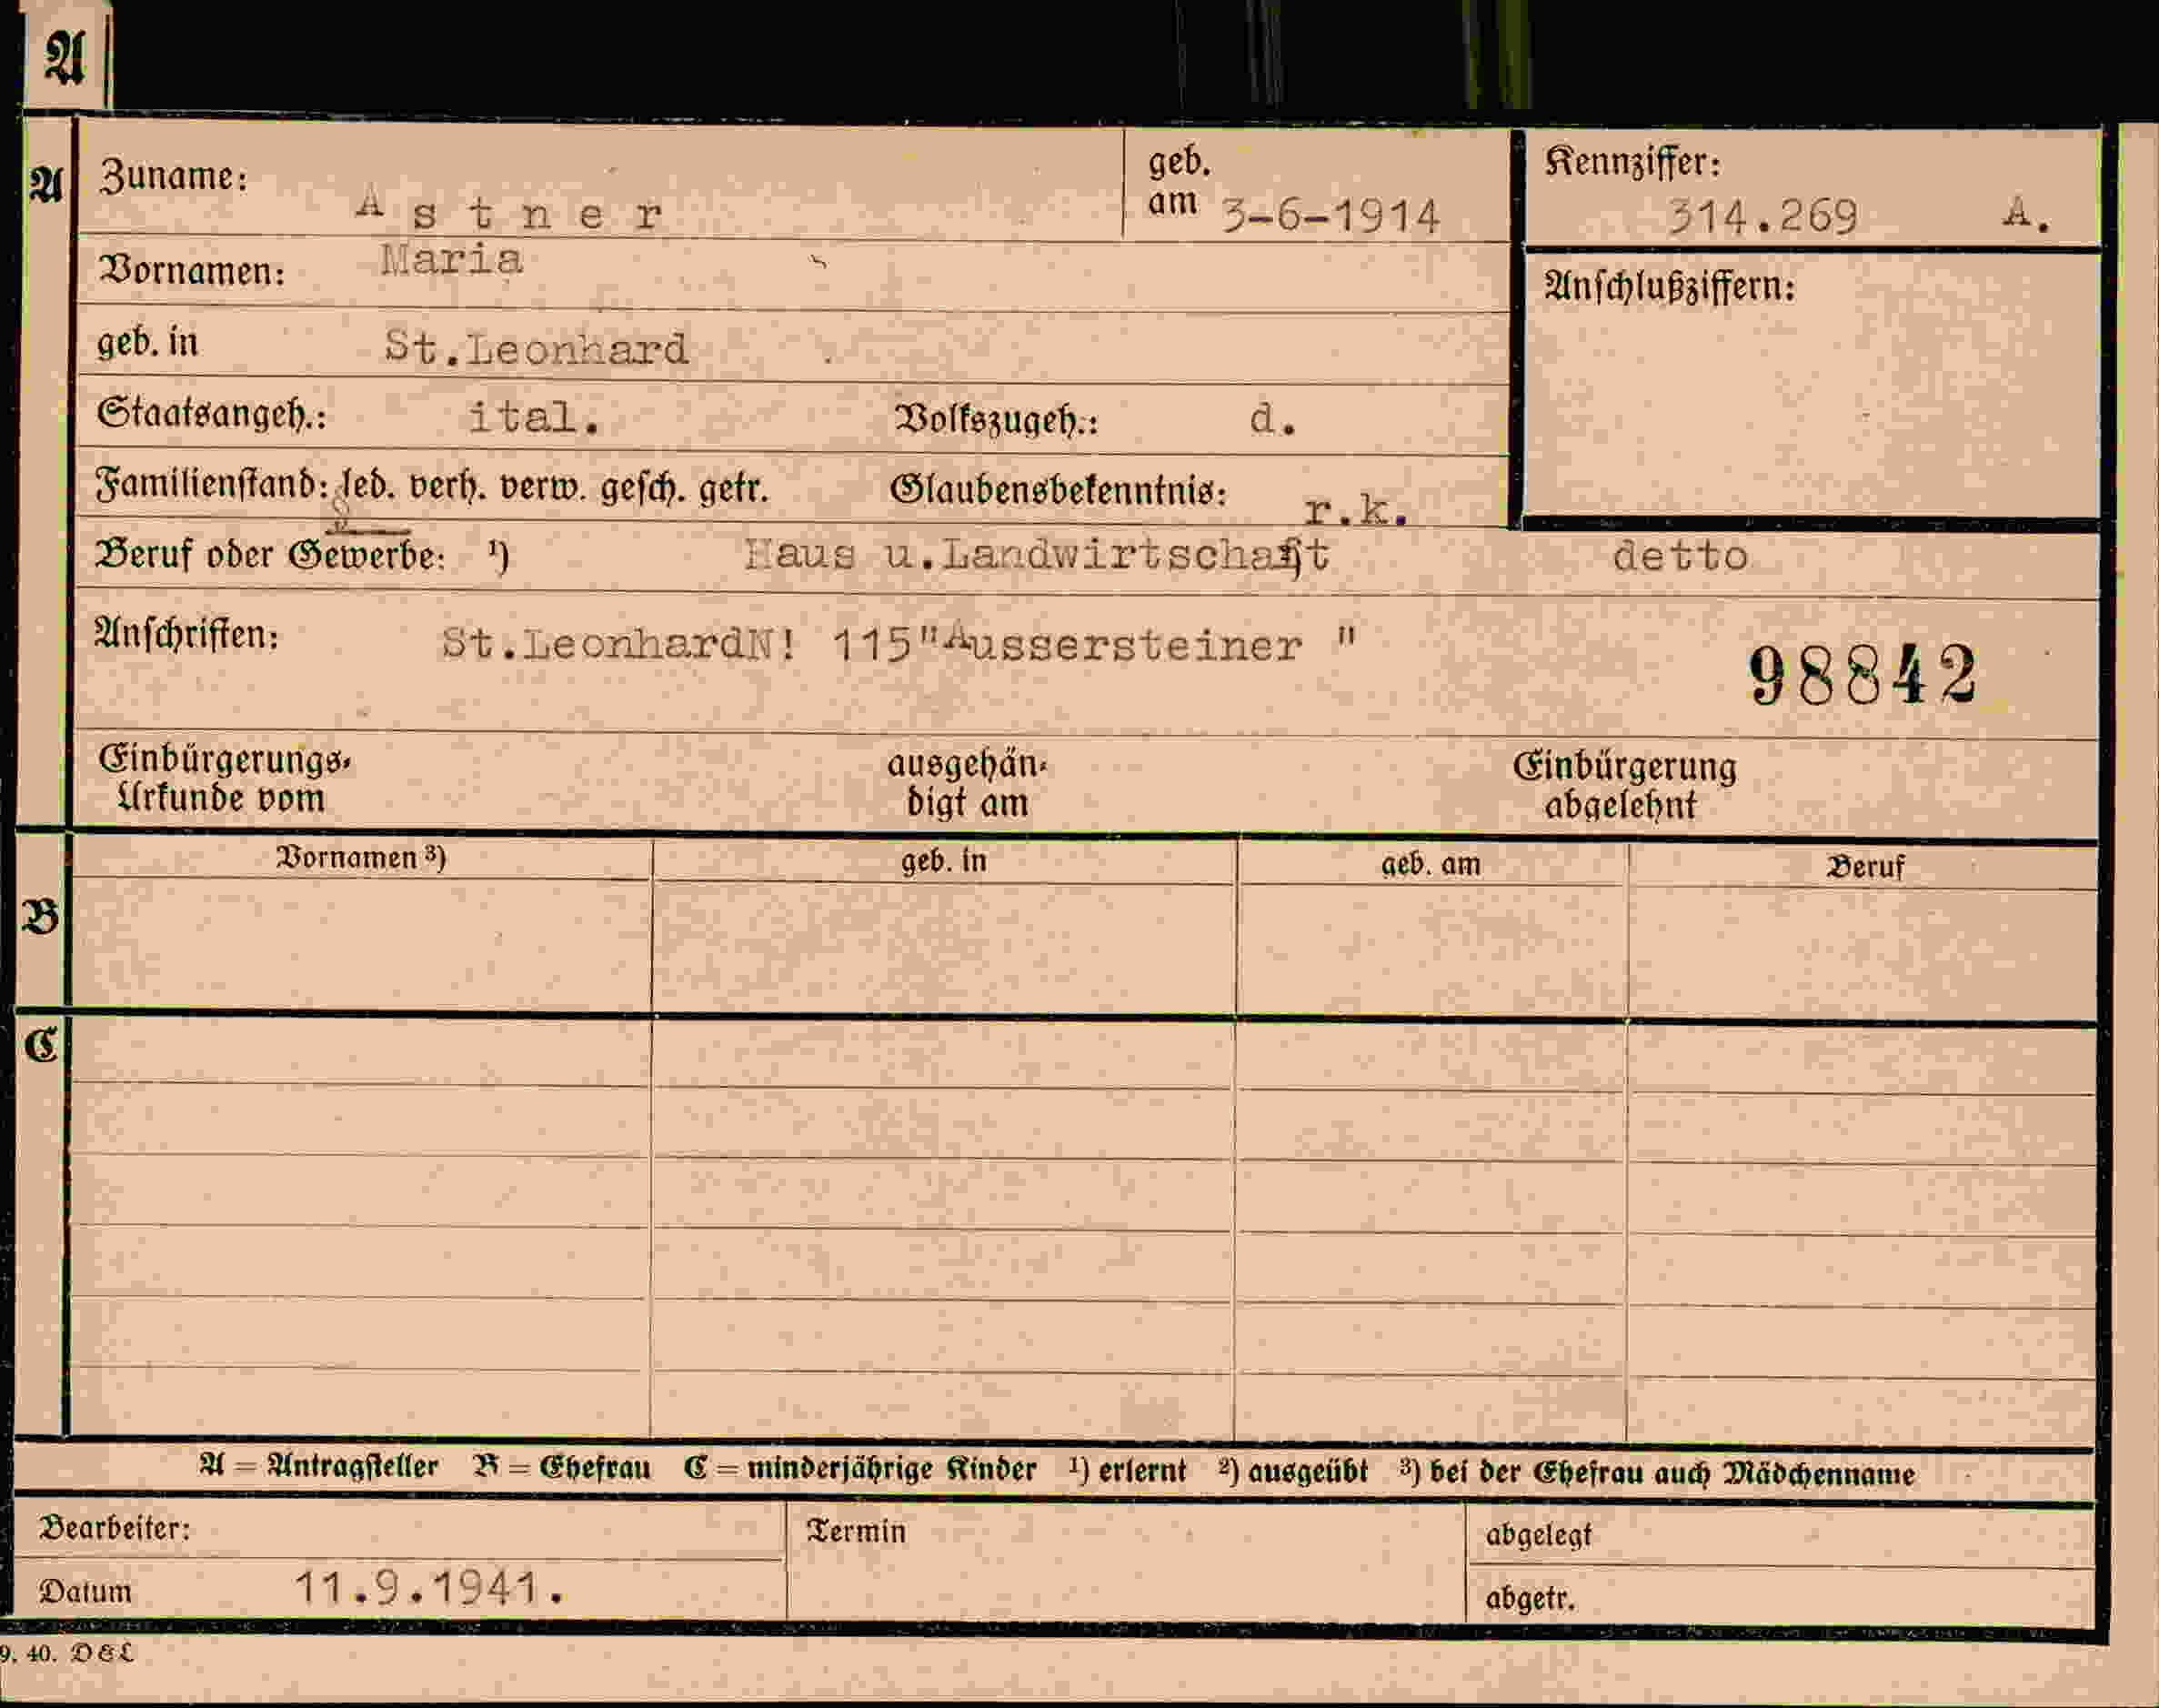 A
A Zuname: Astner geb. am 3-6-1914 Kennziffer: 314.269 A.
Vornamen: Maria
Anschlußziffern:
geb. in St.Leonhard
Staatsangeh.: ital. Volkszugeh.: d.
Familienstand: led. verh. verw. gesch. getr. Glaubensbekenntnis: r.k.
Beruf oder Gewerbe: ¹) Haus u.Landwirtschaft detto
Anschriften: St.LeonhardN! 115"Aussersteiner "
98842
Einbürgerungs-Urkunde vom ausgehän-digt am Einbürgerung abgelehnt
Vornamen ³) geb. in geb. am Beruf
B
C
A = Antragsteller B = Ehefrau C = minderjährige Kinder ¹) erlernt ²) ausgeübt ³) bei der Ehefrau auch Mädchenname
Bearbeiter: Termin abgelegt
Datum 11.9.1941. abgetr.
9. 40. D&L